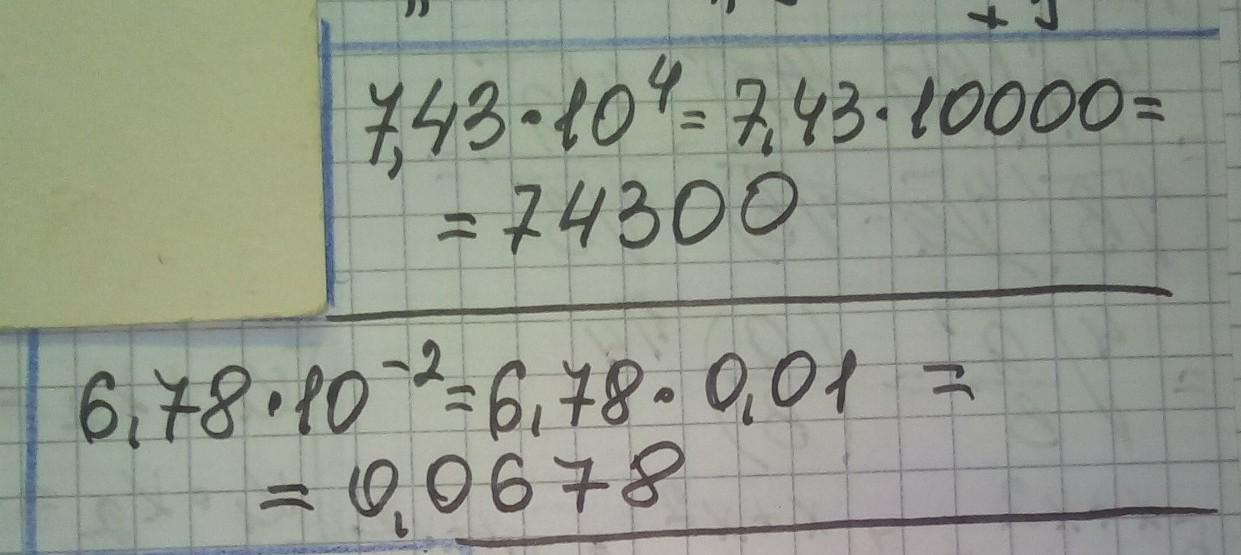 7,43·10⁴=7,43·10000=
=74300
6,78·10⁻²=6,78·0,01 =
=0,0678